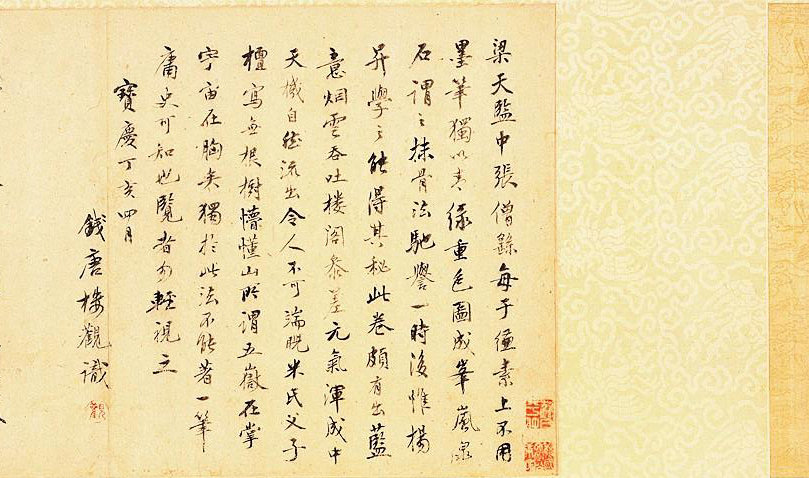 梁天監中張僧繇每于縑素上不用
墨筆獨以青綠重色圖成峯嵐泉
石謂之抹骨法馳譽一時後惟楊
昇學之能得其秘此卷頗有出藍
意烟雲吞吐樓閣參差元氣渾成中
天機自然流出令人不可端睨米氏父子
檀寫無根樹懵懂山所謂五嶽在掌
宇宙在胸矣獨於此法不能著一筆
庸史可知也覽者勿輕視之
寶慶丁亥四月
錢唐樓觀識
觀